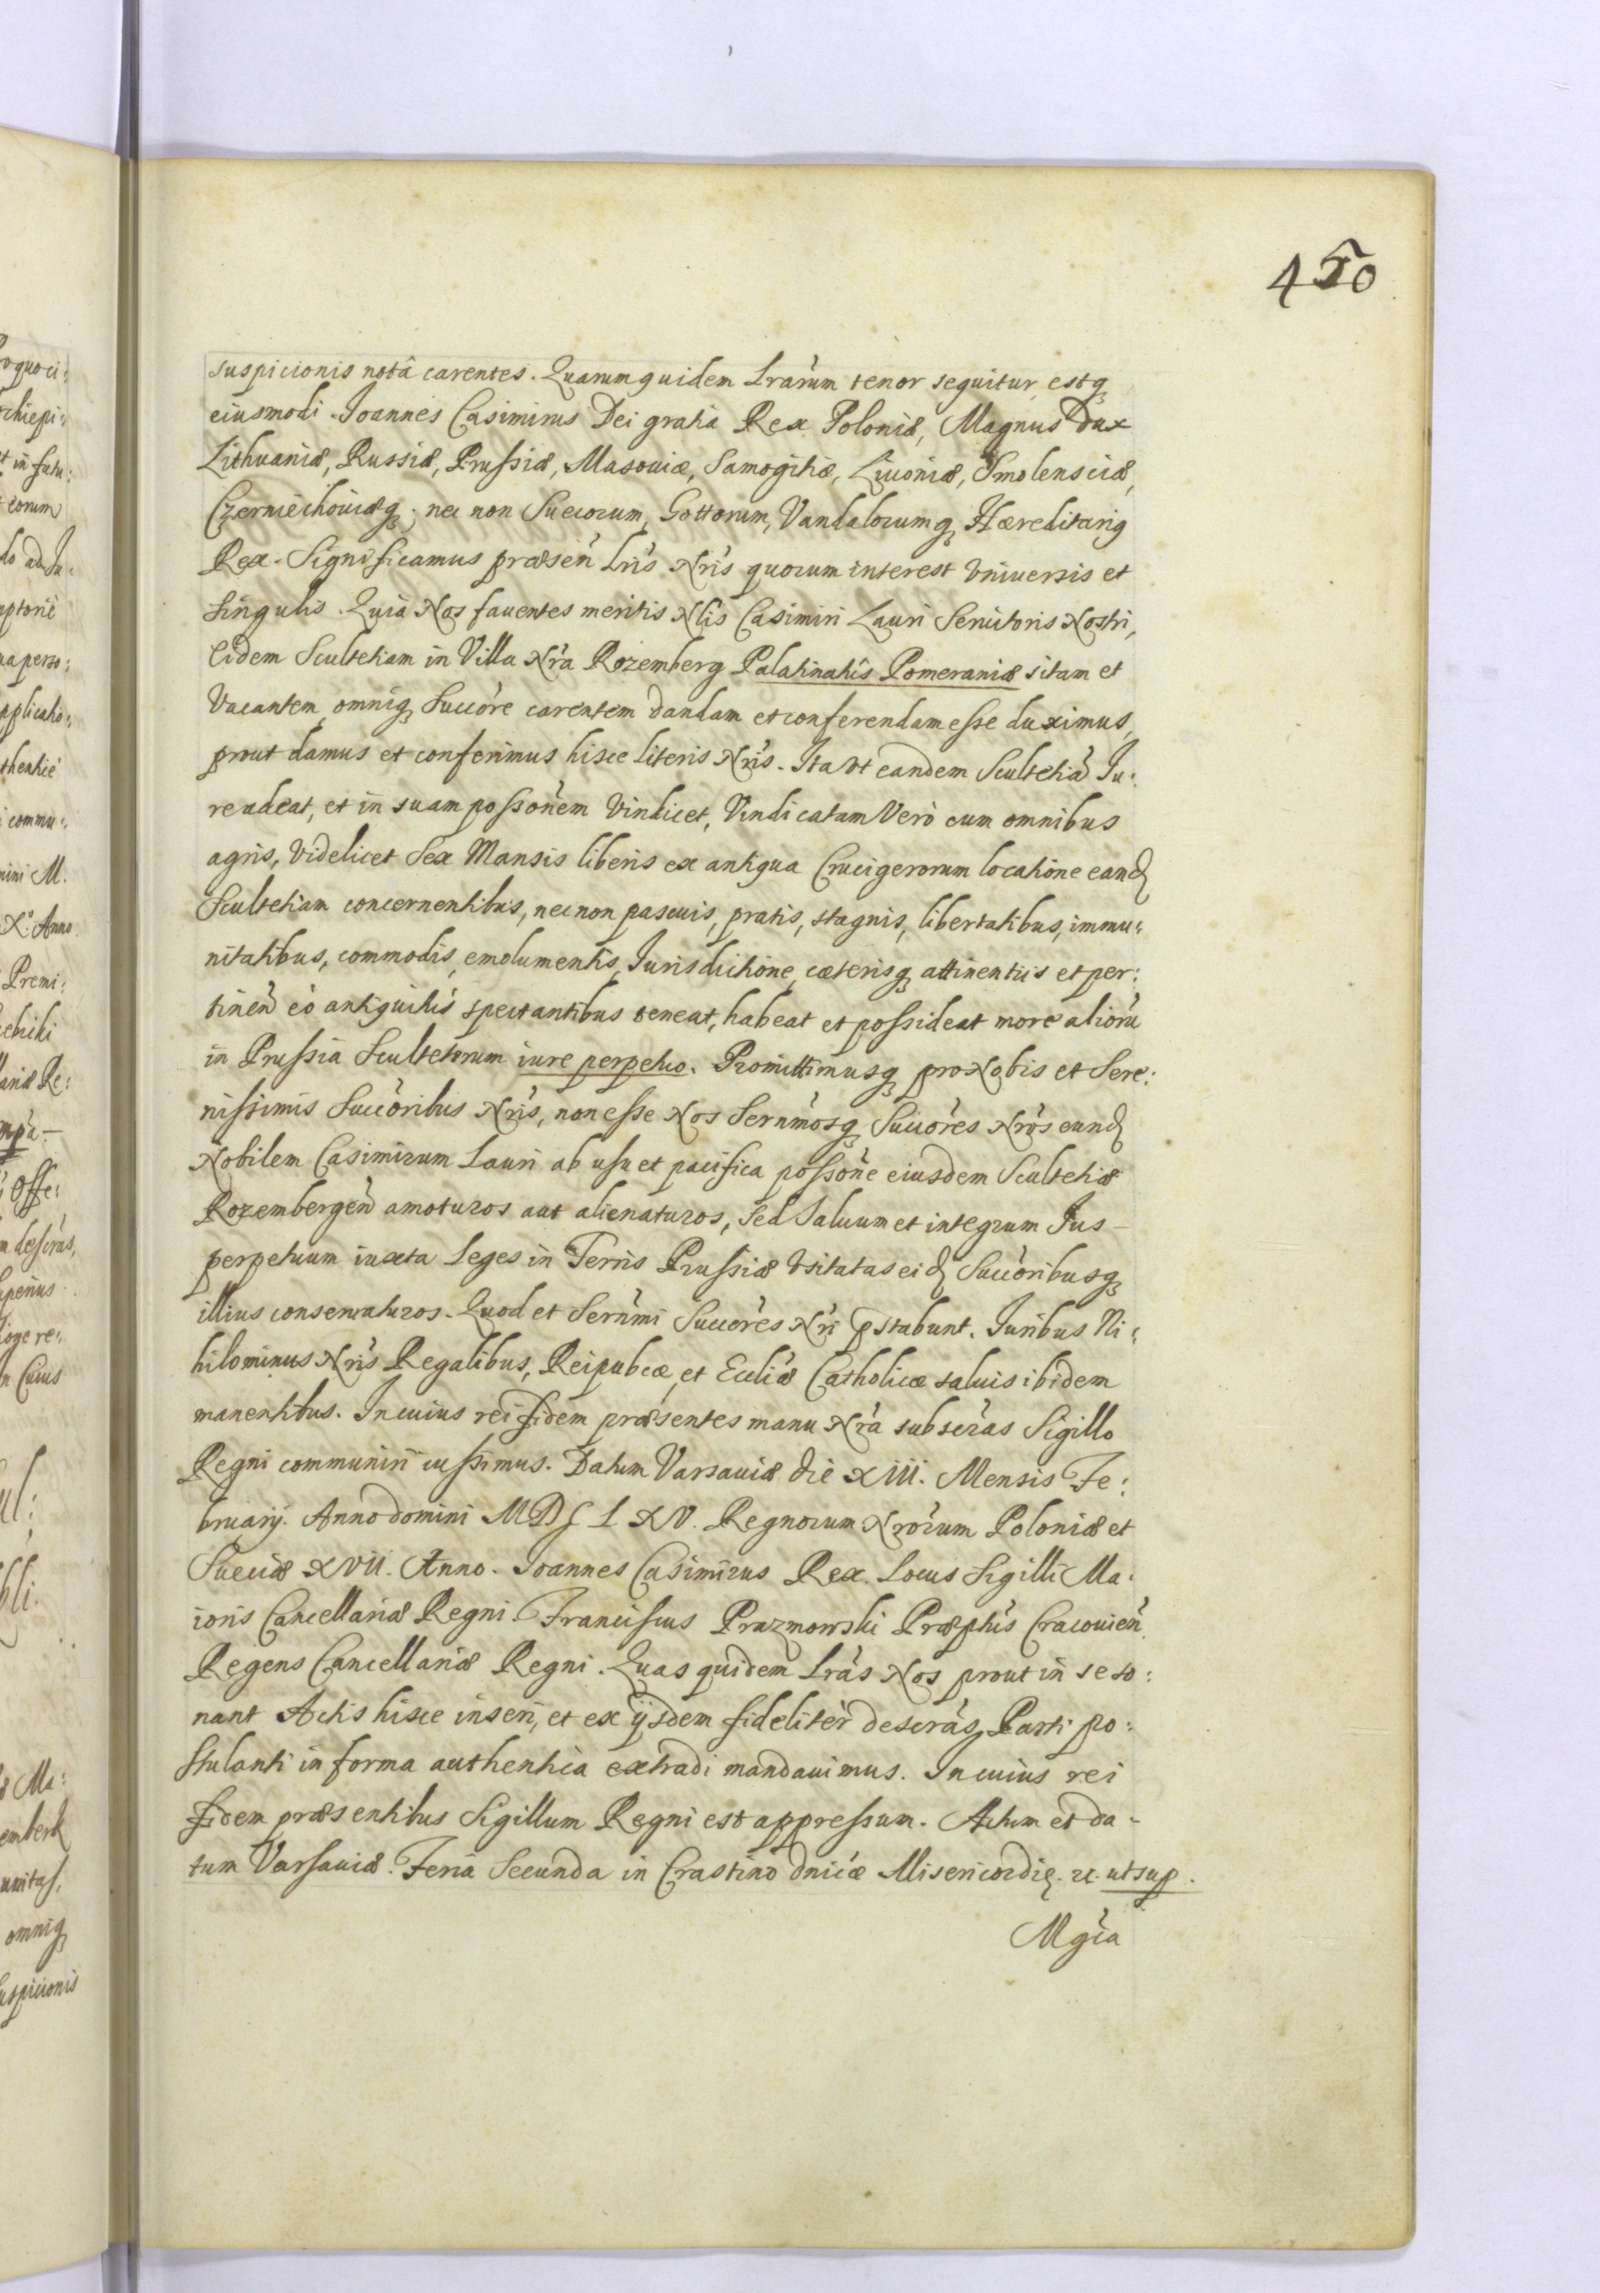 450
suspicionis notâ carentes. Quarum quidem Lrarum tenor sequitur estq
eiusmodi. Joannes Casimirus Dei gratia Rex Poloniæ, Magnus Dux
Lithuaniæ, Russiæ, Prussiæ, Masouiæ, Samogitiæ, Liuoniæ, Smolensciæ,
Czerniechouiæq; nec non Suecorum, Gottorum, Vandalorumq Hæreditariq
Rex. Significamus præsen Lris Nris quorum interest Vniuersis et
singulis. Quia Nos fauentes meritis Nlis Casimiri Lauri Seruitoris Nostri,
Eidem Scultetiam in Villa Nra Rozemberg Palatinatûs Pomeraniæ sitam et
Vacantem omniq Succore carentem dandam et conferendam esse duximus,
prout damus et conferimus hisce literis Nris. Ita Vt eandem Scultetiã Ju:
re adeat, et in suam possonem Vindicet, Vindicatam Verò cum omnibus
agris, Videlicet Sex Mansis liberis ex antiqua Crucigerorum locatione eand
Scultetiam concernentibus, nec non pascuis, pratis, stagnis, libertatibus, immu:
nitatibus, commodis, emolumentis, Jurisdictione, cæterisq attinentiis et per:
tinen eò antiquitùs spectantibus teneat, habeat et possideat more aliorũ
in Prussia Scultetorum iure perpetuo. Promittimusq pro Nobis et Sere:
nissimis Succoribus Nris, non esse Nos Sernmosq Succores Nros eund
Nobilem Casimirum Lauri ab usu et pacifica possone eiusdem Scultetiæ
Rozembergen amoturos aut alienaturos, sed Saluum et integrum Jus
perpetuum iuxta Leges in Terris Prussiæ Vsitatas eid Succoribusq
illius conseruaturos. Quod et Sernmi Succores Nri pstabunt. Juribus Ni:
hilominus Nris Regalibus, Reipubcæ, et Eccliæ Catholicæ saluis ibidem
manentibus. In cuius rei fidem præsentes manu Nra subscras Sigillo
Regni communiri iussimus. Datum Varsauiæ die XIII. Mensis Fe:
bruarij. Anno domini MDC LXV. Regnorum Nrorum Poloniæ et
Sueciæ XVII. Anno. Joannes Casimirus Rex. Locus Sigilli Ma:
ioris Cancellariæ Regni. Franciscus Prazmowski Præptus Cracouien
Regens Cancellariæ Regni. Quas quidem Lras Nos prout in se so:
nant Actis hisce inseri, et ex ijsdem fideliter descras Parti po:
stulanti in forma authentica extradi mandauimus. In cuius rei
fidem præsentibus Sigillum Regni est appressum. Actum et da-
tum Varsauiæ. Feria Secunda in Crastino dnicæ Misericordiæ. &c. ut sup.
Mgca